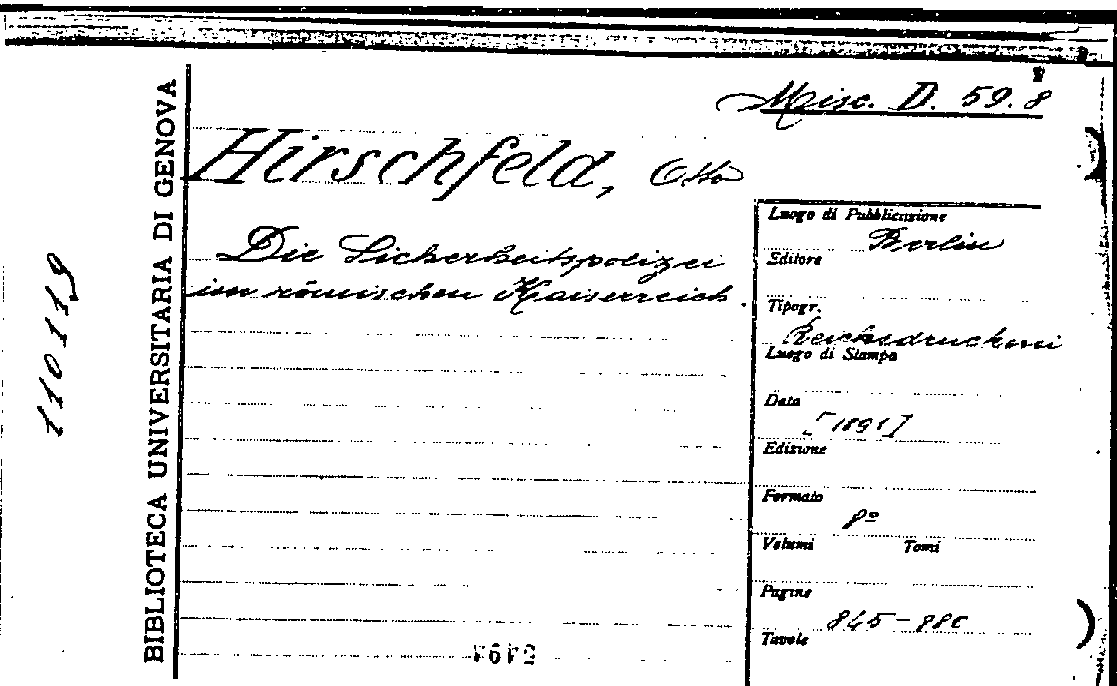 Misc. D. 59.8
Hirschfeld, Otto
Die Sicherheitspolizei
im römischen Kaiserreich.
BIBLIOTECA UNIVERSITARIA DI GENOVA
110119
Luogo di Pubblicazione
Berlin
Editore
Tipogr.
Reichsdruckerei
Luogo di Stampa
Data
[1891]
Edizione
Formato
8º
Volumi Tomi
Pagine
845-880
Tavole